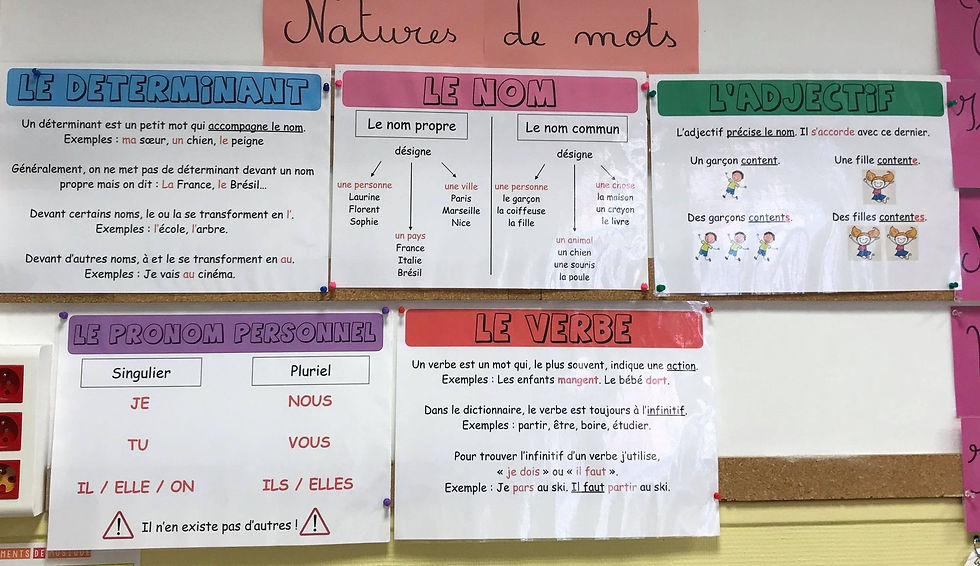 Natures de mots
LE DETERMINANT
Un déterminant est un petit mot qui accompagne le nom.
Exemples : ma sœur, un chien, le peigne
Généralement, on ne met pas de déterminant devant un nom
propre mais on dit : La France, le Brésil...
Devant certains noms, le ou la se transforment en l'.
Exemples : l'école, l'arbre.
Devant d'autres noms, à et le se transforment en au.
Exemples : Je vais au cinéma.
LE NOM
Le nom propre
désigne
une personne
Laurine
Florent
Sophie
un pays
France
Italie
Brésil
une ville
Paris
Marseille
Nice
Le nom commun
désigne
une personne
le garçon
la coiffeuse
la fille
un animal
un chien
une souris
la poule
une chose
la maison
un crayon
le livre
L'ADJECTIF
L'adjectif précise le nom. Il s'accorde avec ce dernier.
Un garçon content.
Une fille contente.
Des garçons contents.
Des filles contentes.
LE PRONOM PERSONNEL
Singulier
Pluriel
JE
NOUS
TU
VOUS
IL / ELLE / ON
ILS / ELLES
Il n'en existe pas d'autres !
LE VERBE
Un verbe est un mot qui, le plus souvent, indique une action.
Exemples : Les enfants mangent. Le bébé dort.
Dans le dictionnaire, le verbe est toujours à l'infinitif.
Exemples : partir, être, boire, étudier.
Pour trouver l'infinitif d'un verbe j'utilise,
« je dois » ou « il faut ».
Exemple : Je pars au ski. Il faut partir au ski.
MENTS DE MUSIQUE